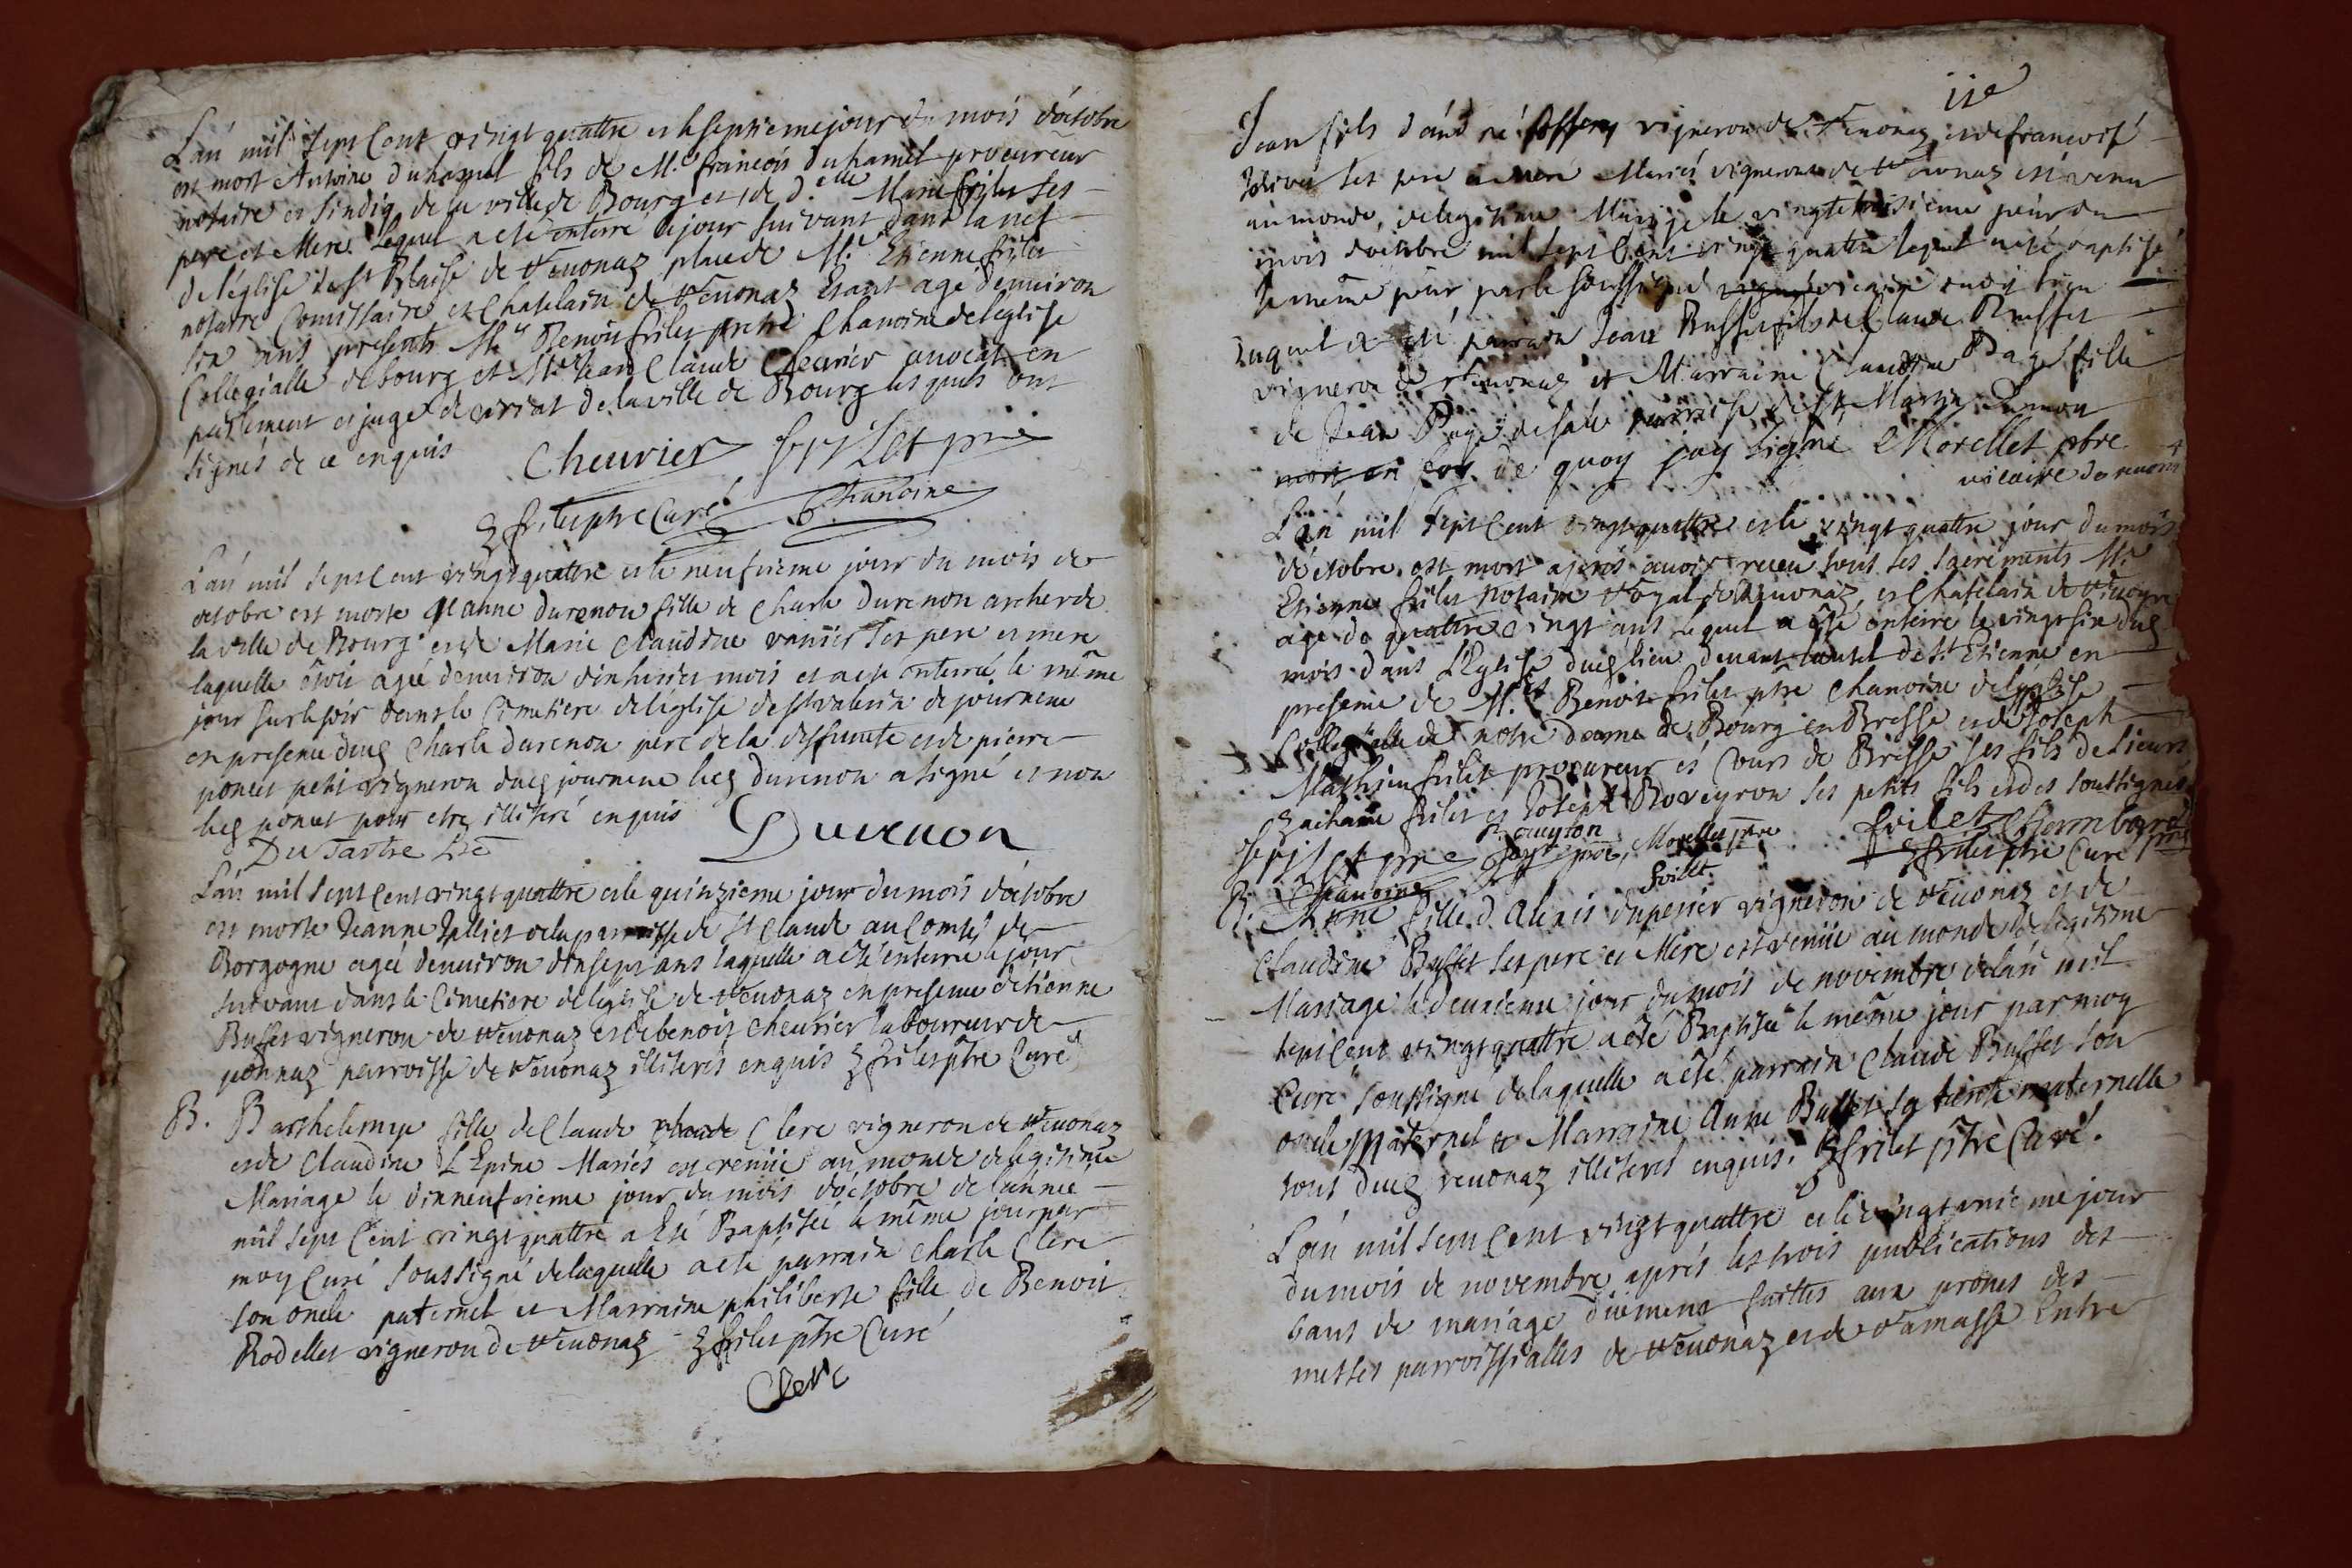 L'an mil sept cent vingt quattre et le septieme jour du mois d'octobre
est mort Antoine duhamel fils de Mr. francois duhamel procureur
notaire et sindiq de la ville de Bourg et de d.elle Marie frilet ses
pere et Mere. Lequel a eté enterré le jour suivant dans la nef
de l'eglise de st Blaise de Reuonaz place de Mr. Etienne frilet
notaire Comissaire et Chatelain de Reuonaz etant agé d'enuiron
six ans presents Mre Benoit frilet pretre Chanoine de leglise
Collegialle de bourg et Mr. Jean Claude Cheurier auocat en
parlement et juge de viriat de la ville de Bourg lesquels ont
signés de ce enquis
Cheurier frilet ptre
frilet ptre Curé Chanoine
L'an mil sept cent vingt quattre et le neufuieme jour du mois de
octobre est morte Jeanne durenon fille de Charle durenon archer de
la ville de Bourg et de Marie Claudine ses pere et mere
laquelle etoit agée denuiron mois et a eté enterrée le même
jour sur le soir dans le Cimetiere de leglise de st valerin de journene
en presence dud Charle durenon pere de la deffunte et de pierre
poncet petit vigneron dud journene led durenon a signé et non
led poncet pour etre illiteré enquis
Du Tartre Durenon
L'an mil sept cent vingt quattre et le quinzieme jour du mois d'octobre
est morte Jeanne de la parroisse de st Claude au Comté de
Borgogne agée denuiron dixsept ans laquelle a eté enterrée le jour
suivant dans le Cimetiere de leglise de Reuonaz en presence d'etienne
Buffet vigneron de Reuonaz et de benoit cheurier laboureur de
ponnaz parroisse de Reuonaz illiterés enquis frilet ptre Curé
B. Barthelemye fille de Claude Clerc vigneron de Reuonaz
et de Claudine L'Epine Mariés est venüe au monde de legitime
Mariage le dixneufuieme jour du mois d'octobre de lannée
mil sept Cent vingt quattre a Eté Baptisée le même jour par
moy Curé soussigné de laquelle a eté parrain Charle Clerc
son oncle paternel et Marraine philiberte fille de Benoit
Rodellet vigneron de Reuonaz frilet ptre Curé
Clerc
Jean fils d'andré vigneron de Reuonaz et de francoise
ses pere et mere Mariés vignerons de Reuonaz est venu
au monde, de legitime Mariage le vingt troisieme jour du
mois doctobre mil sept Cent vingt quattre lequel a eté baptisé
le même jour par le soussigné vicaire
duquel a eté parrain Jean Buffet fils de Claude Buffet
vigneron de Reuonaz et Marraine Claudine Pagé fille
de Jean Pagé de parroisse de st Martin
en foy de quoy j'ay signé Morellet ptre
vicaire de reuonas
L'an mil sept Cent vingt quattre et le vingt quattre jour du mois
d'octobre. est mort apres auoir receu tous les sacrements Mr.
Etienne frilet Notaire Royal de Reuonaz, et Chatelain de
agé de quattre vingt ans lequel a eté enterré le vingt six dud
mois dans L'Eglise dud lieu deuant l'autel de st Etienne en
presence de Mre Benoit frilet ptre Chanoine de leglise
Collegialle de notre dame de Bourg en Bresse et de Joseph
Mathieu frilet procureur es Cours de Bresse ses fils de sieurs
Zacharie frilet et Joseph Roveyron ses petits fils et des soussignés
frilet ptre Morellet ptre frilet Chambard
Chanoine frilet frilet ptre Curé
B. Anne fille d'Alexis duperier vigneron de Reuonaz et de
Claudine Buffet ses pere et Mere est venüe au monde de legitime
Mariage le deuxieme jour du mois de novembre de lan mil
sept Cent vingt quattre a eté Baptisée le même jour par moy
Curé soussigné de laquelle a eté parrain Claude Buffet son
oncle Maternel et Marraine Anne Buffet sa tante maternelle
tous dud reuonaz illiterés enquis. frilet ptre Curé.
L'an mil sept Cent vingt quattre et le vingt unieme jour
du mois de novembre apres les trois publications des
bans de mariage düement faittes aux prones des
messes parroissialles de Reuonaz et de Ramasse Entre